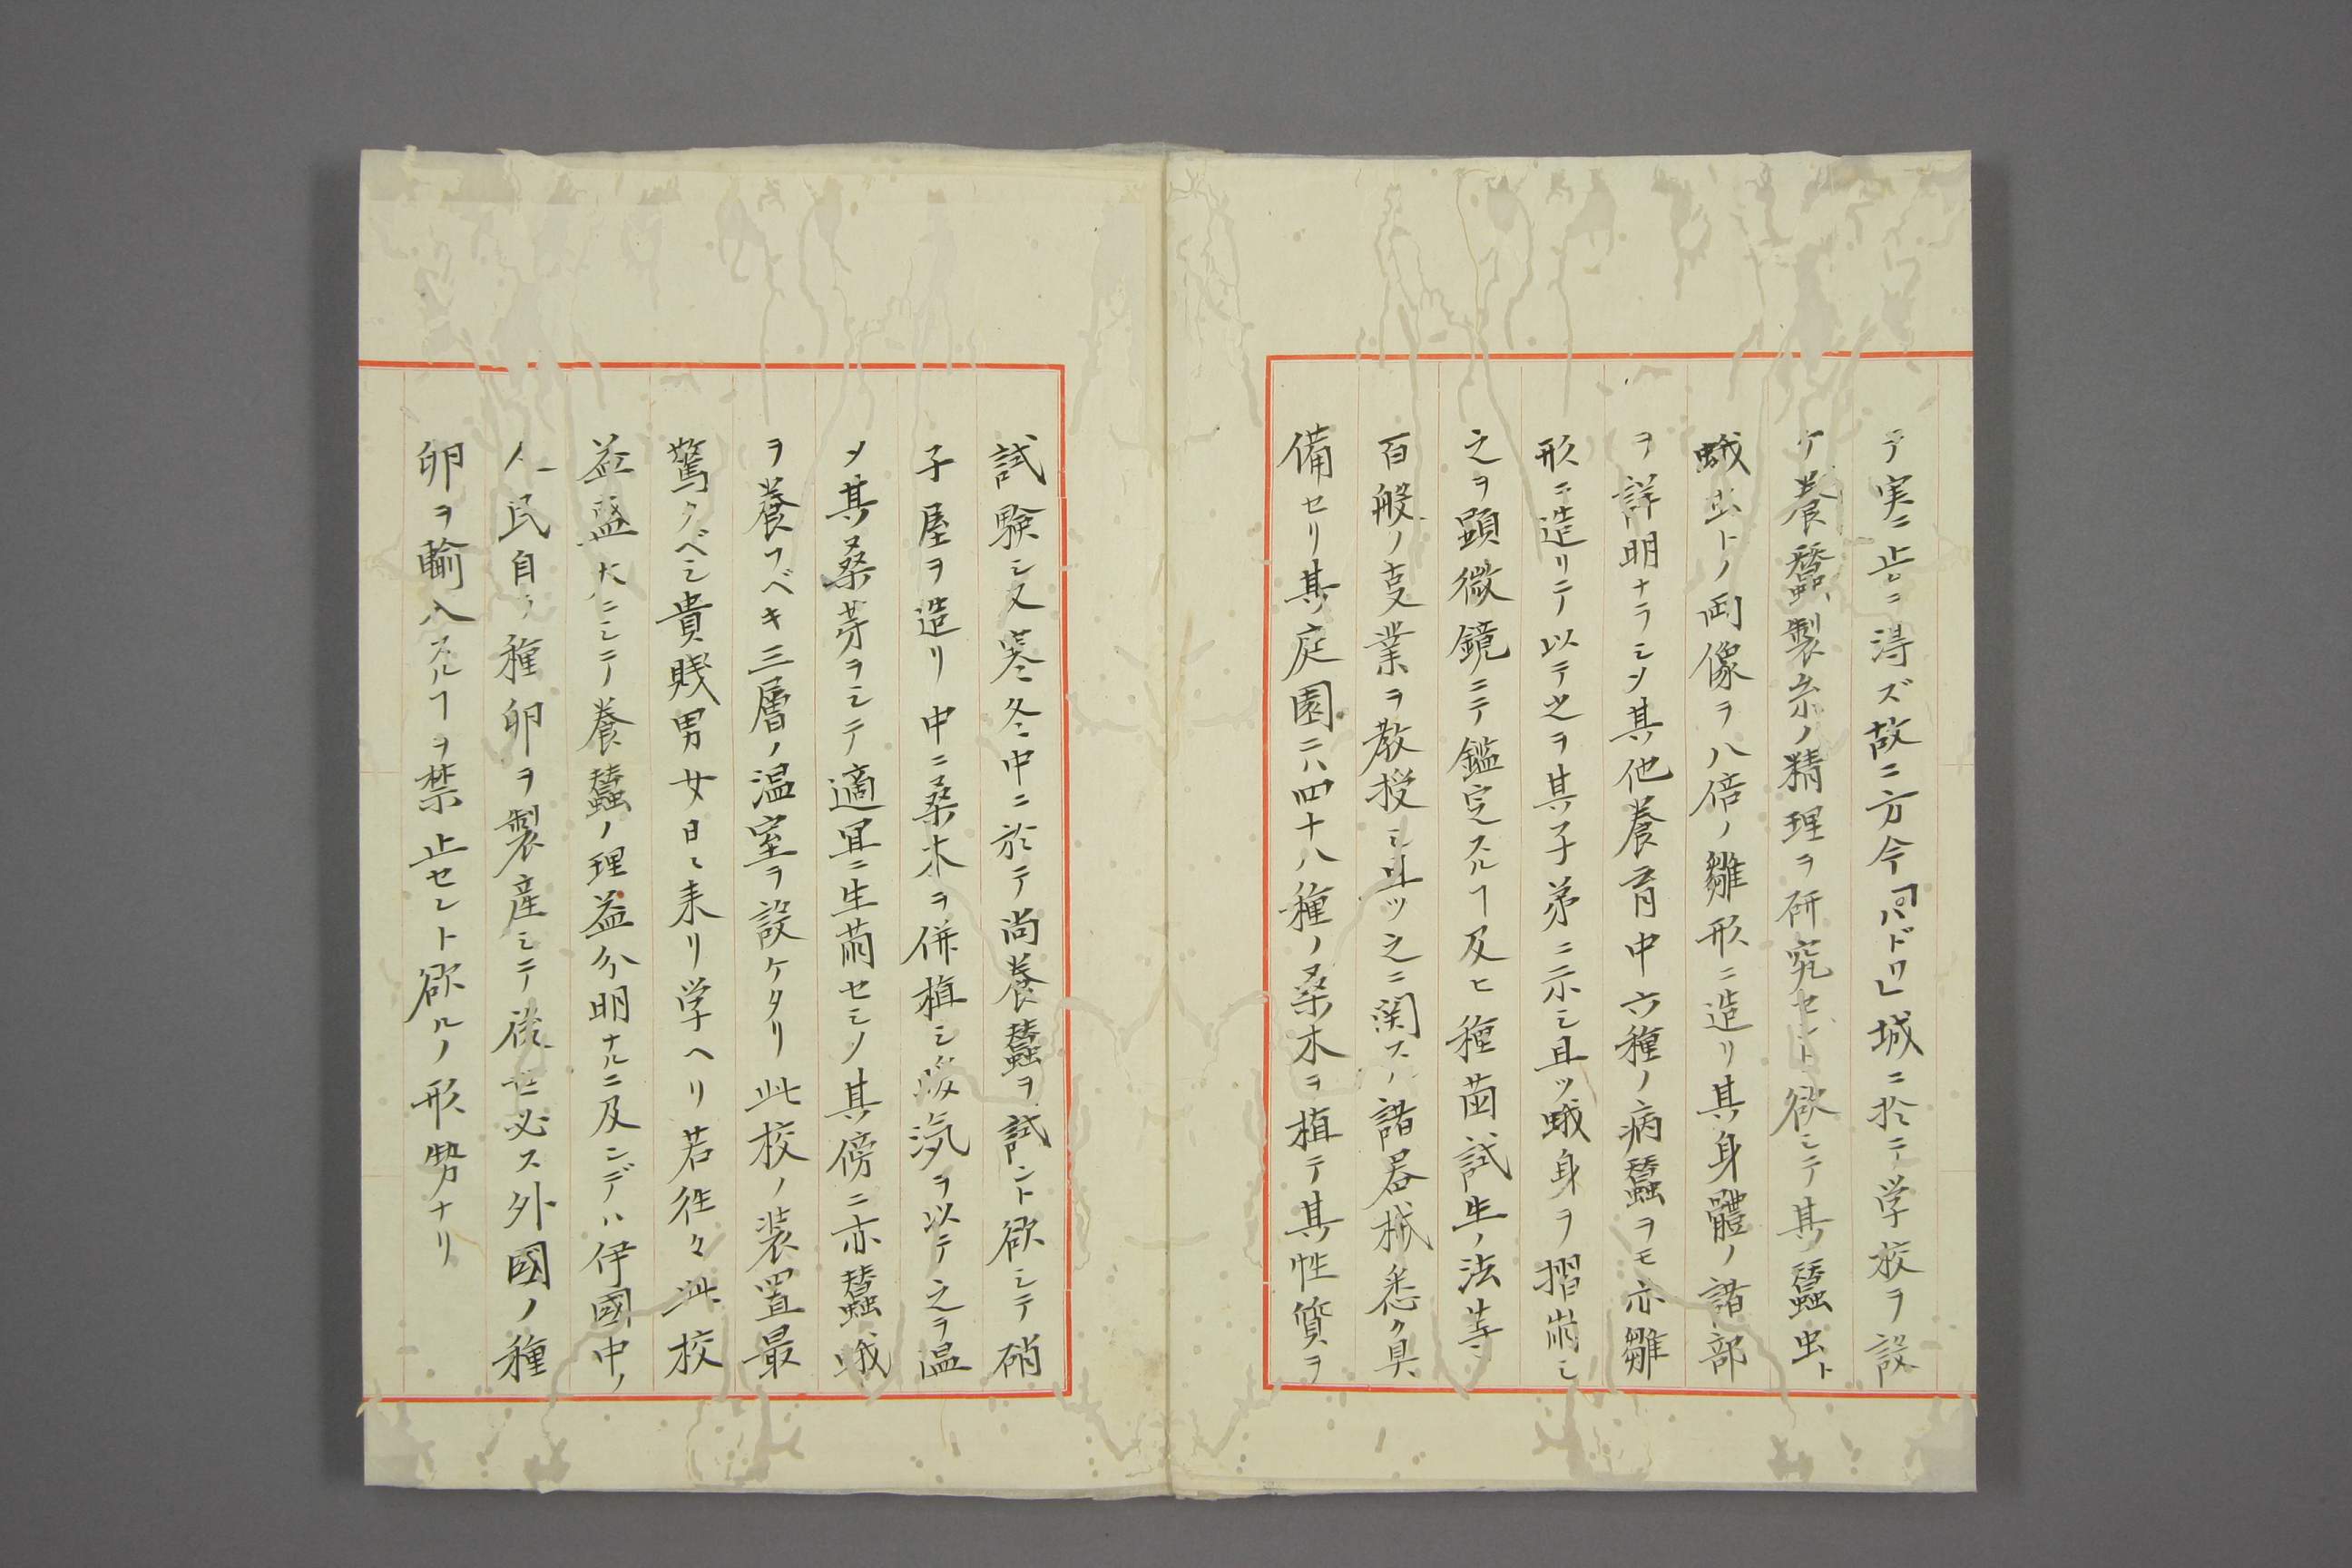 テ実ニ止ヿヲ得ズ故ニ方今『パドワ』城ニ於テ学校ヲ設
ケ養蠶製糸ノ精理ヲ研究セント欲シテ其蠶虫ト
蛾虫トノ両像ヲ八倍ノ雛形ニ造リ其身體ノ諸部
ヲ詳明ナラシメ其他養育中六種ノ病蠶ヲモ亦雛
形ニ造リテ以テ之ヲ其子弟ニ示シ且ツ蛾身ヲ摺崩シ
之ヲ顕微鏡ニテ鑑定スルヿ及ヒ種茧試生ノ法等
百般ノ叓業ヲ教授シ且ツ之ニ関スル諸器械悉ク具
備セリ其庭園ニハ四十八種ノ桑木ヲ植テ其性質ヲ
試験シ又寒冬中ニ於テ尚養蠶ヲ試ント欲シテ硝
子屋ヲ造リ中ニ桑木ヲ併植シ暖気ヲ以テ之ヲ温
メ其桑芽ヲシテ適冝ニ生萠セシメ其傍ニ亦蠶蛾
ヲ養フベキ三層ノ温室ヲ設ケタリ此校ノ装置最
驚クベシ貴賤男女日々来リ学ヘリ若徃々此校
益盛大ニシテ養蠶ノ理益分明ナルニ及ンデハ伊國中ノ
人民自ラ種卵ヲ製産シテ後世必ス外國ノ種
卵ヲ輸入スルヿヲ禁止セント欲ルノ形勢ナリ